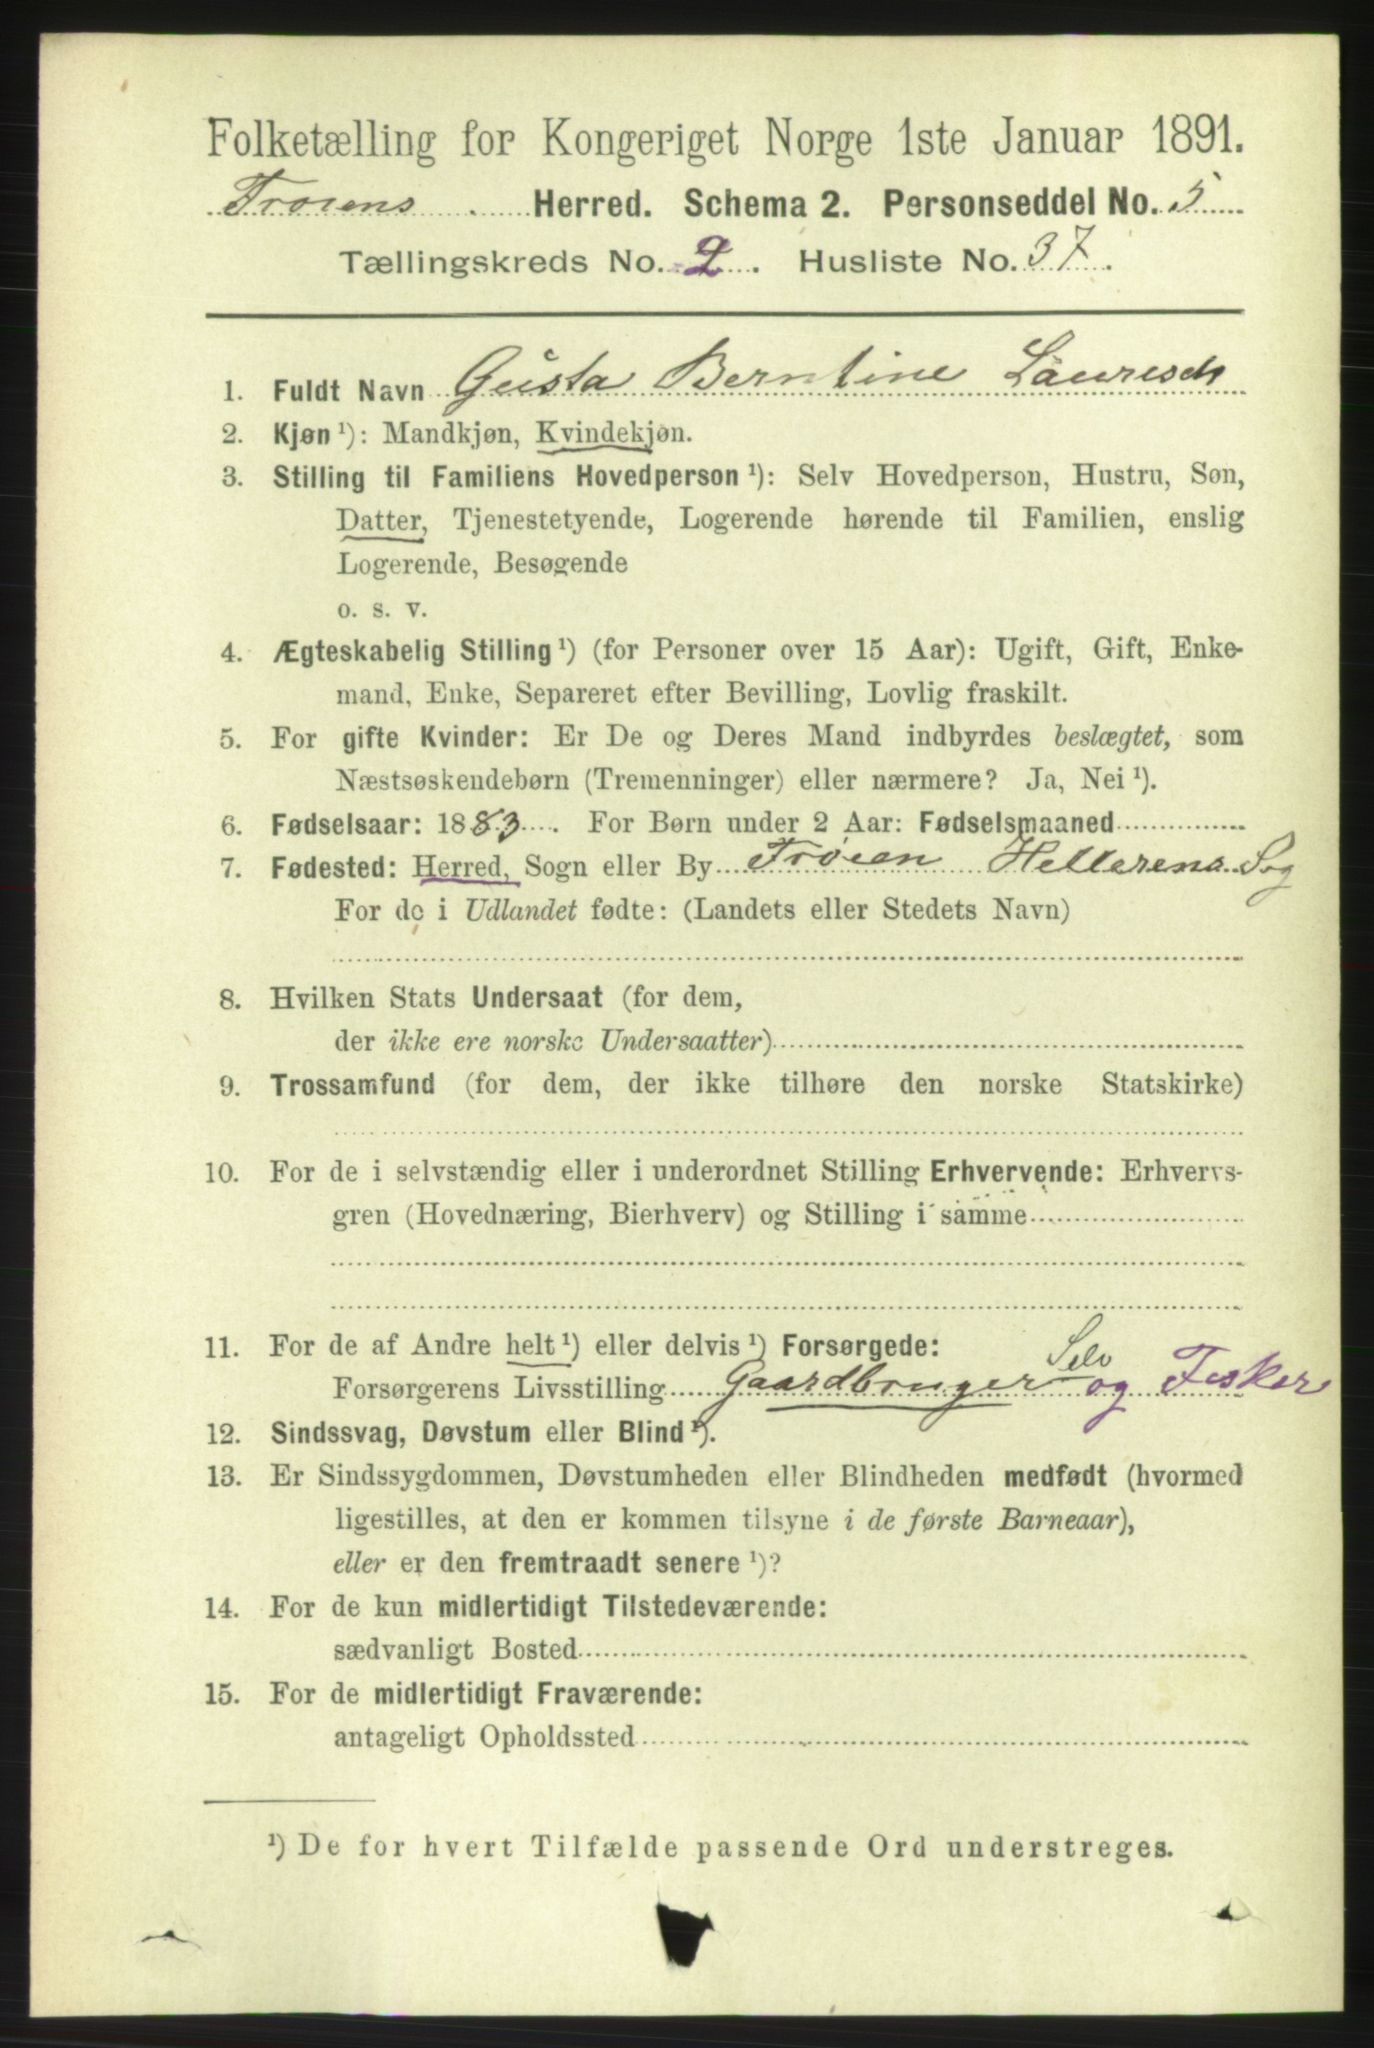 Folketælling for Kongeriget Norge 1ste Januar 1891.
Herred. Schema 2. Personseddel No. 5
Tællingskreds No. 2. Husliste No. 37.
1. Fuldt Navn Gusta Berntine
2. Kjøn ¹): Mandkjøn, Kvindekjøn.
3. Stilling til Familiens Hovedperson ¹): Selv Hovedperson, Hustru, Søn,
Datter, Tjenestetyende, Logerende hørende til Familien, enslig
Logerende, Besøgende
o. s. v.
4. Ægteskabelig Stilling ¹) (for Personer over 15 Aar): Ugift, Gift, Enke-
mand, Enke, Separeret efter Bevilling, Lovlig fraskilt.
5. For gifte Kvinder: Er De og Deres Mand indbyrdes beslægtet, som
Næstsøskendebørn (Tremenninger) eller nærmere? Ja, Nei ¹).
6. Fødselsaar: 1883. For Børn under 2 Aar: Fødselsmaaned
7. Fødested: Herred, Sogn eller By Trøien
For de i Udlandet fødte: (Landets eller Stedets Navn)
8. Hvilken Stats Undersaat (for dem,
der ikke ere norske Undersaatter)
9. Trossamfund (for dem, der ikke tilhøre den norske Statskirke)
10. For de i selvstændig eller i underordnet Stilling Erhvervende: Erhvervs-
gren (Hovednæring, Bierhverv) og Stilling i samme
11. For de af Andre helt ¹) eller delvis ¹) Forsørgede:
Forsørgerens Livsstilling Gaardbruger Selv og Fisker
12. Sindssvag, Døvstum eller Blind ¹).
13. Er Sindssygdommen, Døvstumheden eller Blindheden medfødt (hvormed
ligestilles, at den er kommen tilsyne i de første Barneaar),
eller er den fremtraadt senere ¹)?
14. For de kun midlertidigt Tilstedeværende:
sædvanligt Bosted
15. For de midlertidigt Fraværende:
antageligt Opholdssted
¹) De for hvert Tilfælde passende Ord understreges.